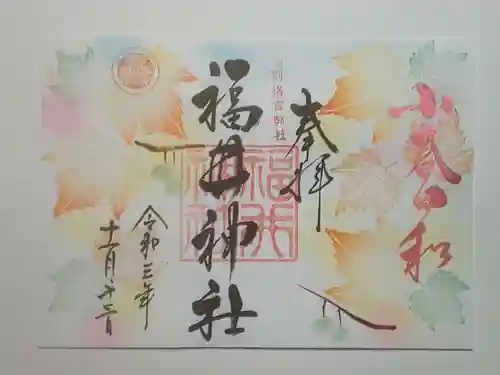 小春日和
奉拝
別格官幣社
福井神社
福井神社
令和三年
十一月十三日